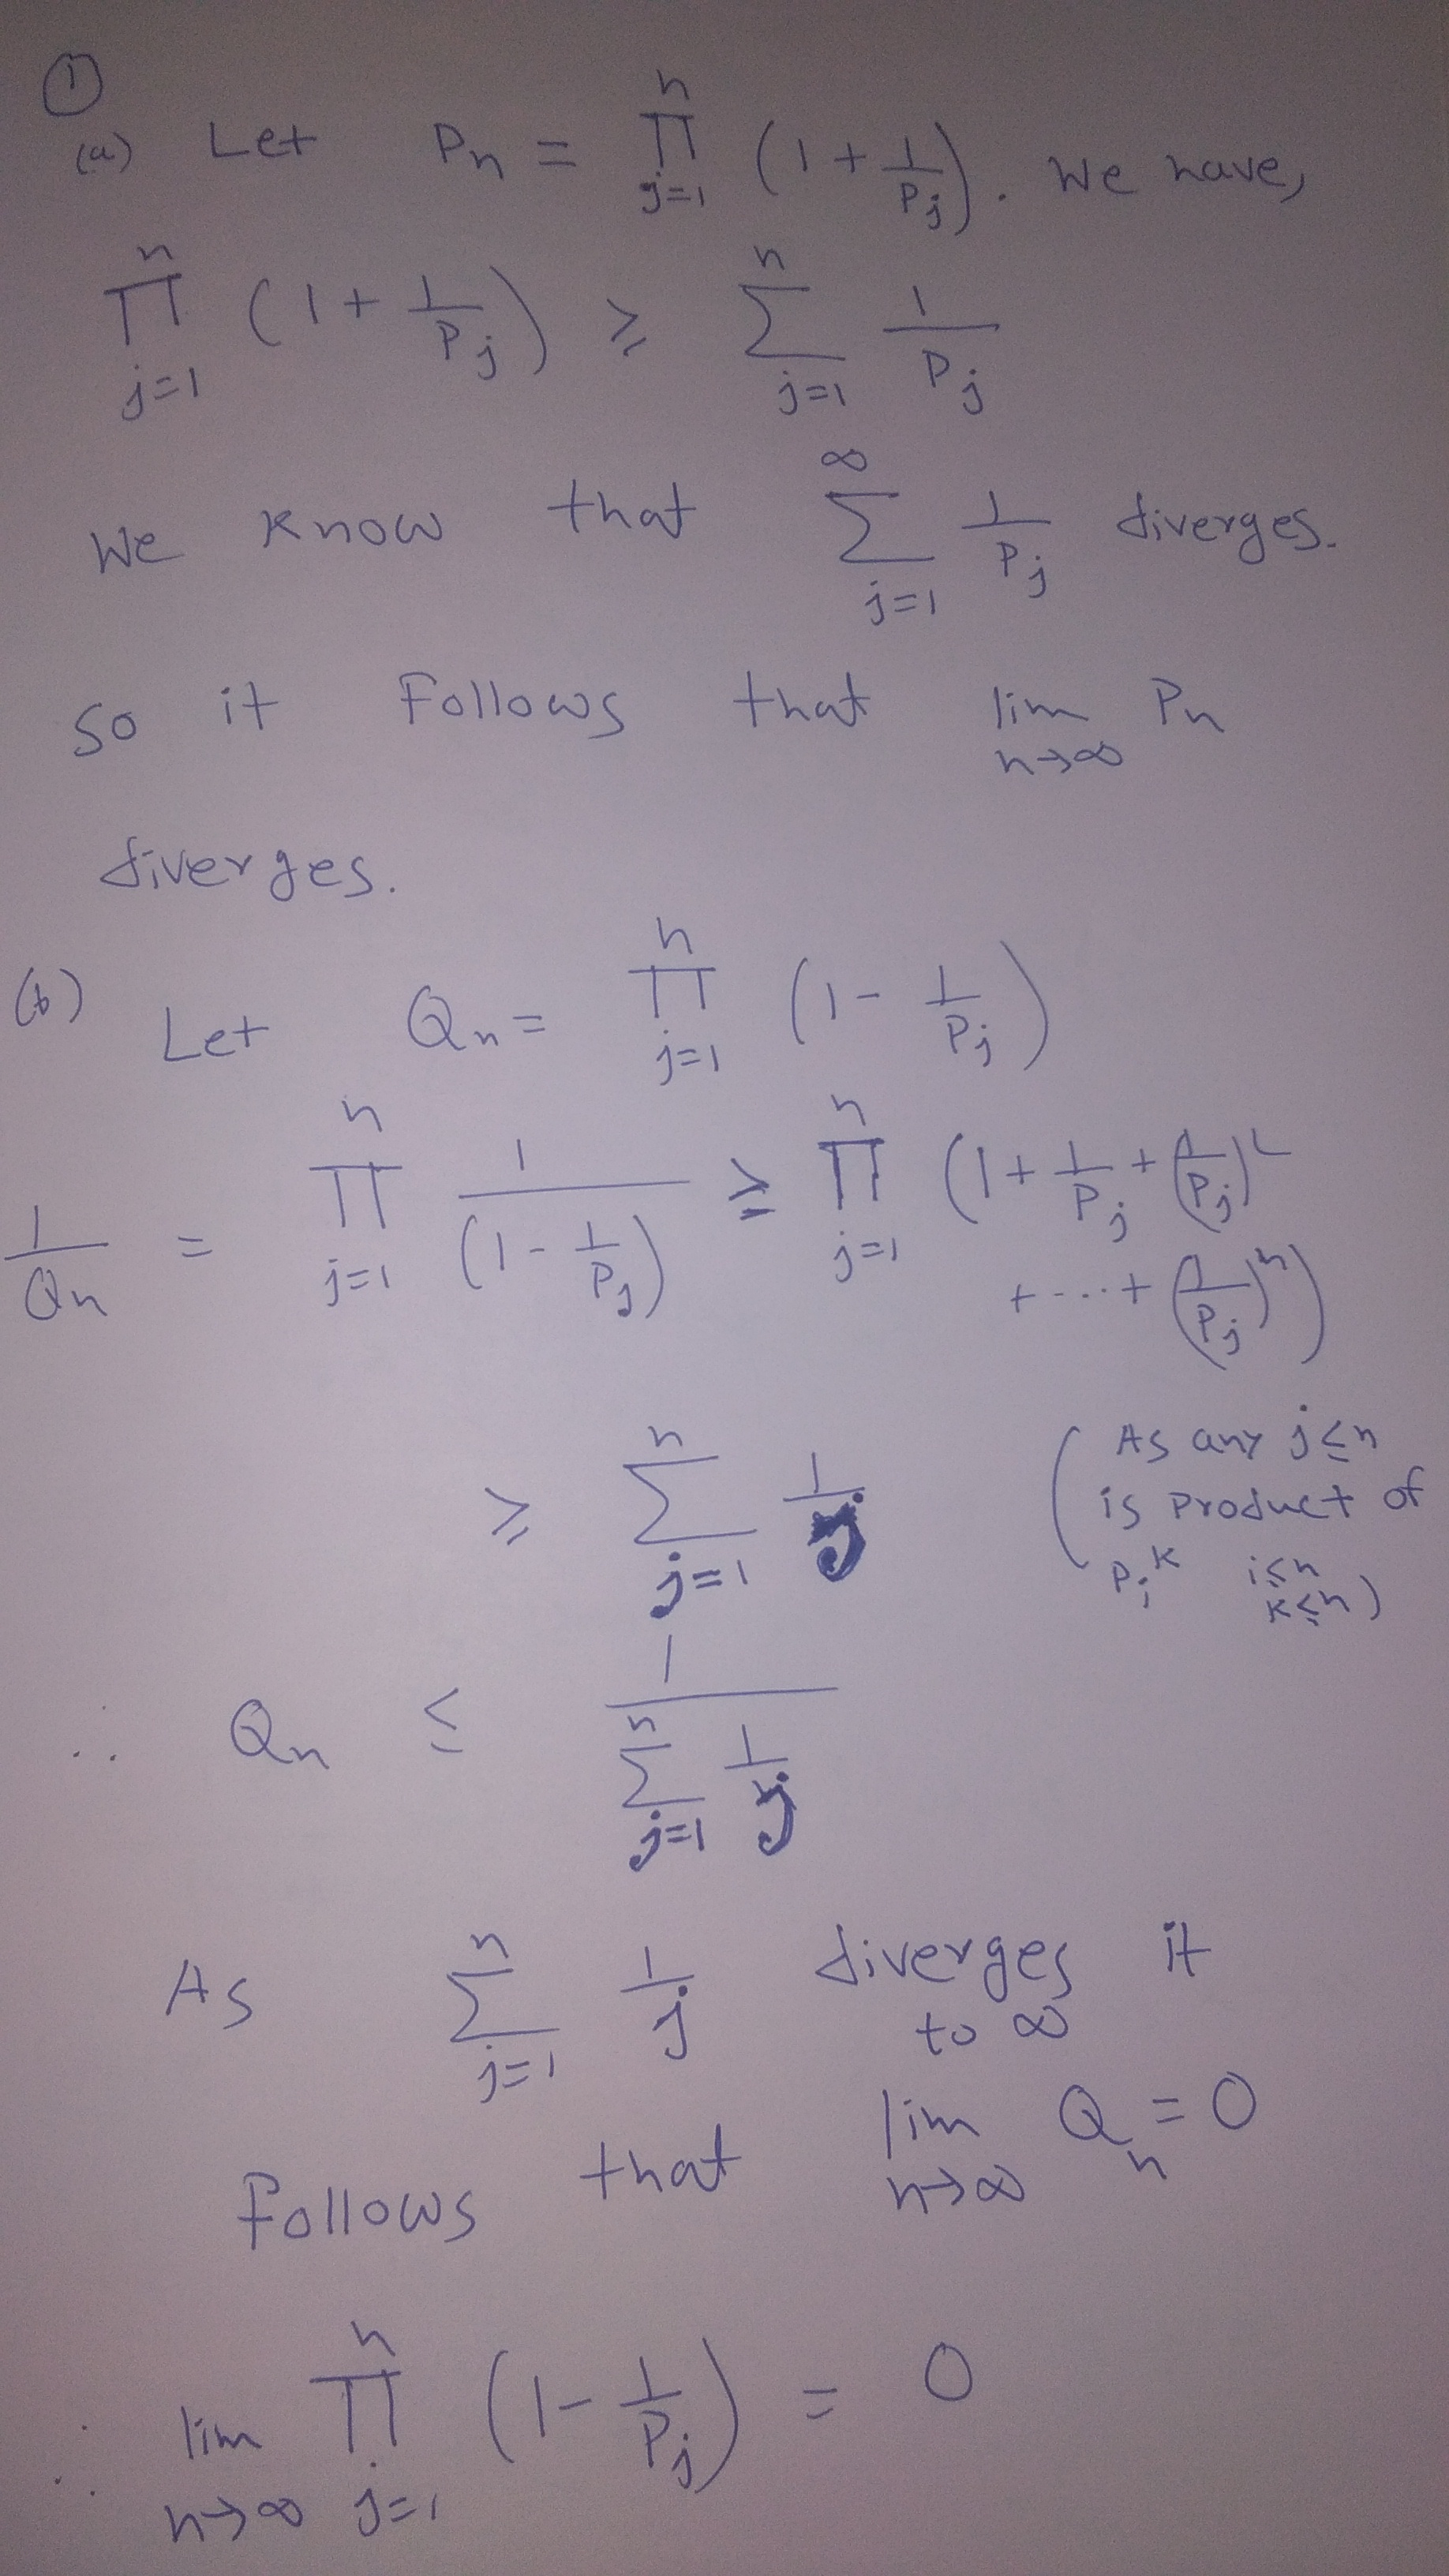 ①
(a) Let Pn = ∏_{j=1}^{n} (1 + 1/Pj). We have,
∏_{j=1}^{n} (1 + 1/Pj) ≥ ∑_{j=1}^{n} 1/Pj
We know that ∑_{j=1}^{∞} 1/Pj diverges.
So it follows that lim_{n→∞} Pn
diverges.
(b) Let Qn = ∏_{j=1}^{n} (1 - 1/Pj)
1/Qn = ∏_{j=1}^{n} 1/(1 - 1/Pj) ≥ ∏_{j=1}^{n} (1 + 1/Pj + (1/Pj)^2
+ ... + (1/Pj)^n)
≥ ∑_{j=1}^{n} 1/j (As any j ≤ n
is product of
Pi^k i≤n k≤n)
∴ Qn ≤ 1/(∑_{j=1}^{n} 1/j)
As ∑_{j=1}^{n} 1/j diverges it
to ∞
follows that lim_{n→∞} Qn = 0
∴ lim_{n→∞} ∏_{j=1}^{n} (1 - 1/Pj) = 0